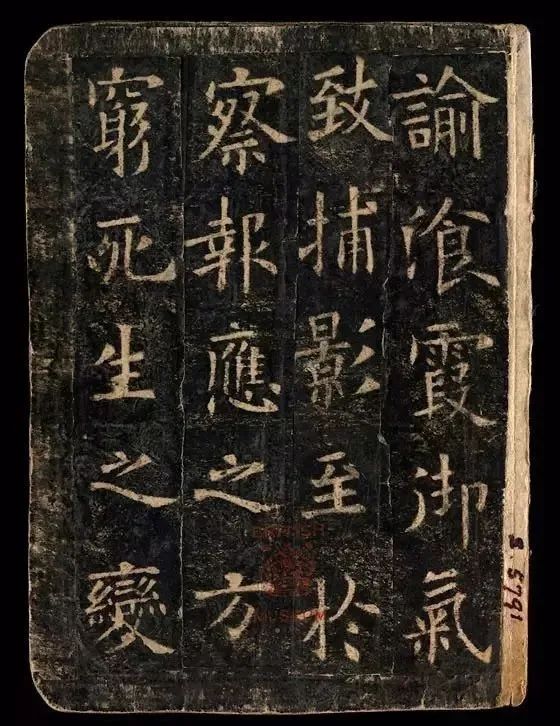 諭湌霞御氣
致捕影至於
察報應之方
窮死生之變
S 5791